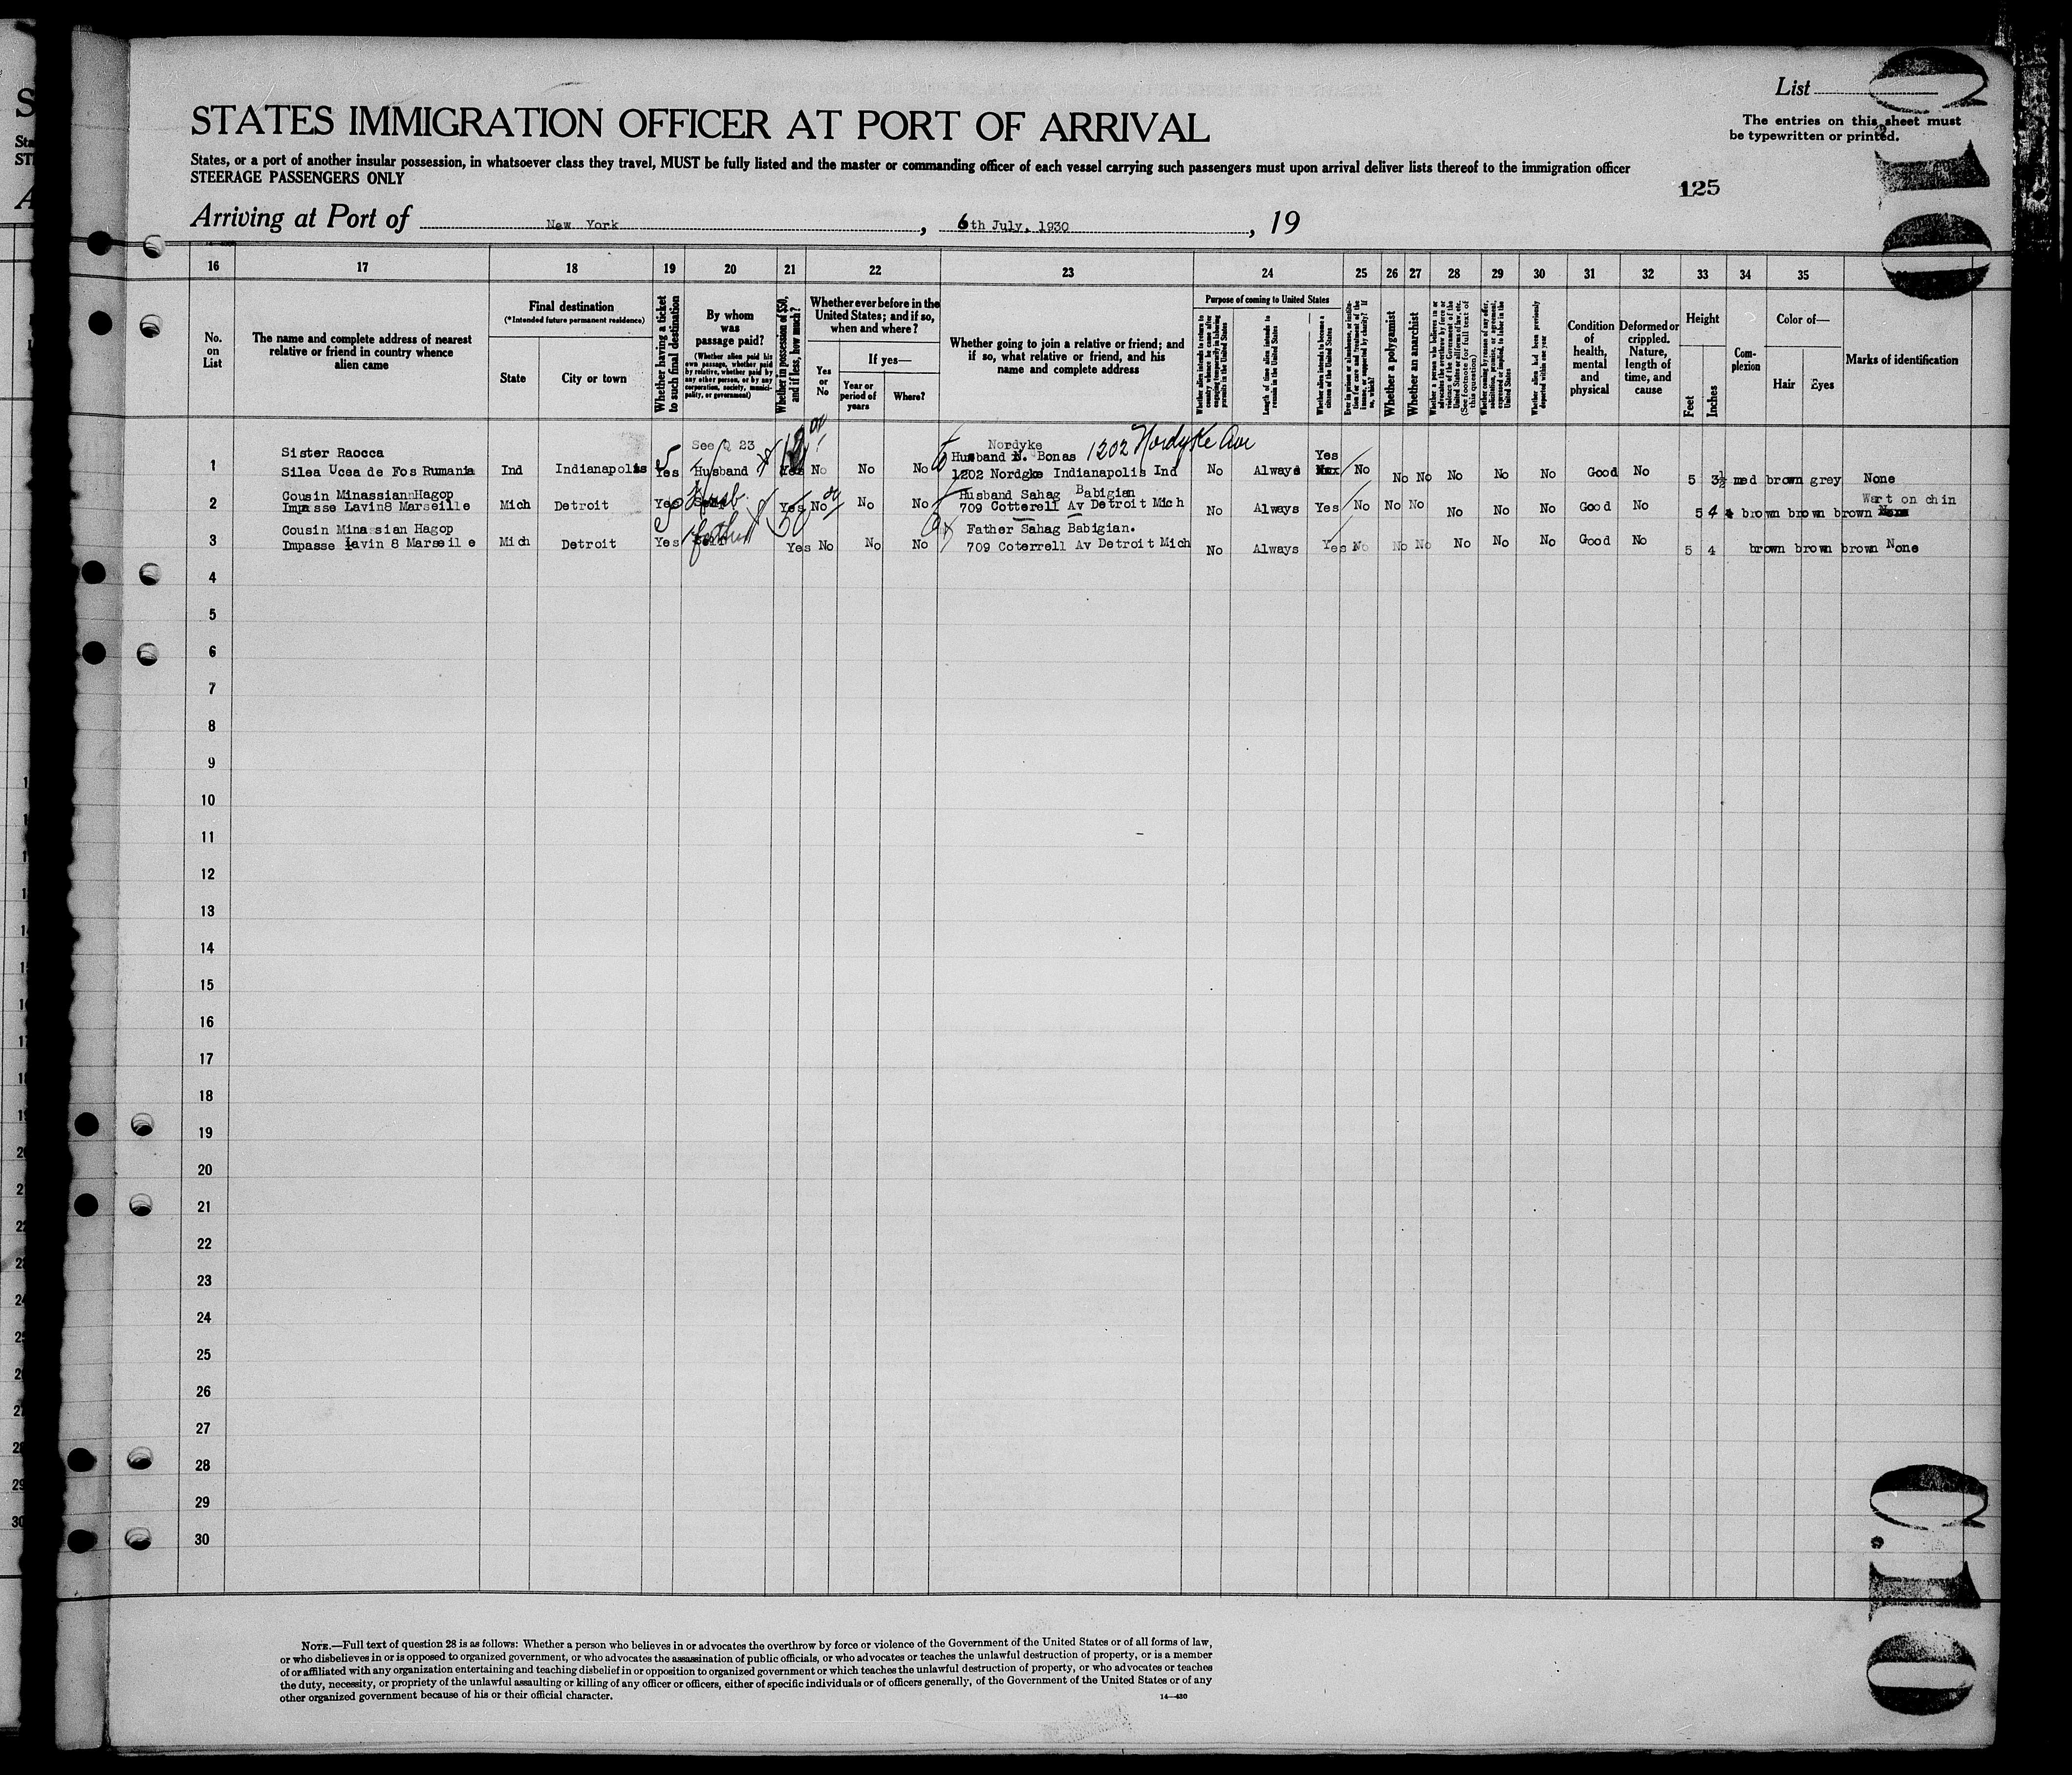 List
The entries on this sheet must
be typewritten or printed.
STATES IMMIGRATION OFFICER AT PORT OF ARRIVAL
States, or a port of another insular possession, in whatsoever class they travel, MUST be fully listed and the master or commanding officer of each vessel carrying such passengers must upon arrival deliver lists thereof to the immigration officer
STEERAGE PASSENGERS ONLY
125
Arriving at Port of New York, 6th July, 1930, 19
16 17 18 19 20 21 22 23 24 25 26 27 28 29 30 31 32 33 34 35
No. on List
The name and complete address of nearest relative or friend in country whence alien came
Final destination
(*Intended future permanent residence)
State
City or town
Whether having a ticket to such final destination
By whom was passage paid?
(Whether alien paid his own passage, whether paid by relative, whether paid by any other person, or by any corporation, society, municipality, or government)
Whether in possession of $50, and if less, how much?
Whether ever before in the United States; and if so, when and where?
Yes or No
If yes—
Year or period of years
Where?
Whether going to join a relative or friend; and if so, what relative or friend, and his name and complete address
Purpose of coming to United States
Whether alien intends to return to country whence he came after engaging temporarily in laboring pursuits in the United States
Length of time alien intends to remain in the United States
Whether alien intends to become a citizen of the United States
Ever in prison or almshouse, or institution for care and treatment of the insane, or supported by charity? If so, which?
Whether a polygamist
Whether an anarchist
Whether a person who believes in or advocates the overthrow by force or violence of the Government of the United States or all forms of law, etc. (See footnote for full text of this question)
Whether coming by reason of any offer, solicitation, promise, or agreement, expressed or implied, to labor in the United States
Whether alien had been previously deported within one year
Condition of health, mental and physical
Deformed or crippled. Nature, length of time, and cause
Height
Feet
Inches
Complexion
Color of—
Hair
Eyes
Marks of identification
Sister Raocca See Q 23 Nordyke 1202 Nordyke Ave
Husband N. Bonas Yes
1 Silea Ucea de Fos Rumania Ind Indianapolis Yes Husband Yes No No No 1202 Nordgke Indianapolis Ind No Always No No No No No No Good No 5 3½ med brown grey None
Cousin Minassian Hagop Husb. Husband Sahag Babigian Wart on chin
2 Impasse Lavin8 Marseille Mich Detroit Yes Yes No No No 709 Cotterell Av Detroit Mich No Always Yes No No No No No No Good No 5 4 brown brown brown
Cousin Minassian Hagop father 50 Father Sahag Babigian.
3 Impasse Lavin 8 Marseil e Mich Detroit Yes Yes No No No 709 Coterrell Av Detroit Mich No Always Yes No No No No No No Good No 5 4 brown brown brown None
4
5
6
7
8
9
10
11
12
13
14
15
16
17
18
19
20
21
22
23
24
25
26
27
28
29
30
NOTE.—Full text of question 28 is as follows: Whether a person who believes in or advocates the overthrow by force or violence of the Government of the United States or of all forms of law,
or who disbelieves in or is opposed to organized government, or who advocates the assassination of public officials, or who advocates or teaches the unlawful destruction of property, or is a member
of or affiliated with any organization entertaining and teaching disbelief in or opposition to organized government or which teaches the unlawful destruction of property, or who advocates or teaches
the duty, necessity, or propriety of the unlawful assaulting or killing of any officer or officers, either of specific individuals or of officers generally, of the Government of the United States or of any
other organized government because of his or their official character.
14—430